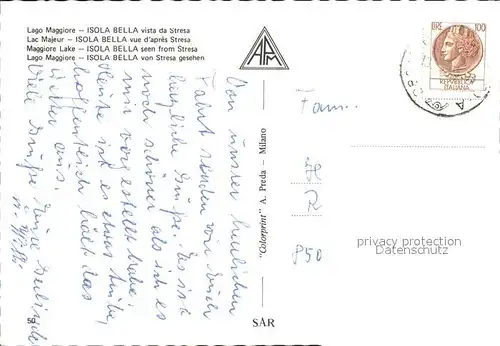 Lago Maggiore – ISOLA BELLA vista da Stresa
Lac Majeur – ISOLA BELLA vue d'après Stresa
Maggiore Lake – ISOLA BELLA seen from Stresa
Lago Maggiore – ISOLA BELLA von Stresa gesehen
APM
Von unserer herrlichen
Fahrt senden wir Euch
herzliche Grüße. Es ist
noch schöner als ich es
mir vorgestellt habe.
Heute ist es etwas trübe,
hoffentlich hält das
Wetter aus.
Viele Grüße Eure
50
"Colorprint" A. Preda – Milano
SAR
LIRE 100
REPUBBLICA
ITALIANA
Fam..
R
850
privacy protection
Datenschutz